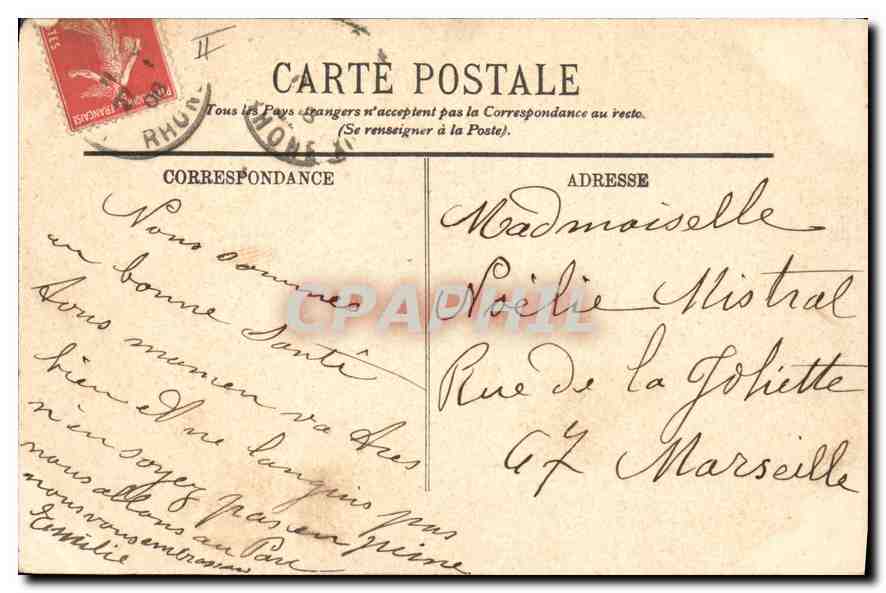 CARTE POSTALE
Tous les Pays étrangers n'acceptent pas la Correspondance au recto.
(Se renseigner à la Poste).
CORRESPONDANCE
ADRESSE
RHONE
II
Nous sommes
en bonne santé
tous maman va tres
bien et ne languis pas
n'en soyez pas en peine
nous allons au Parc
nous vous embrassons
Familie
Madmoiselle
Noëlie Mistral
Rue de la Joliette
47 Marseille
CPAPHIL